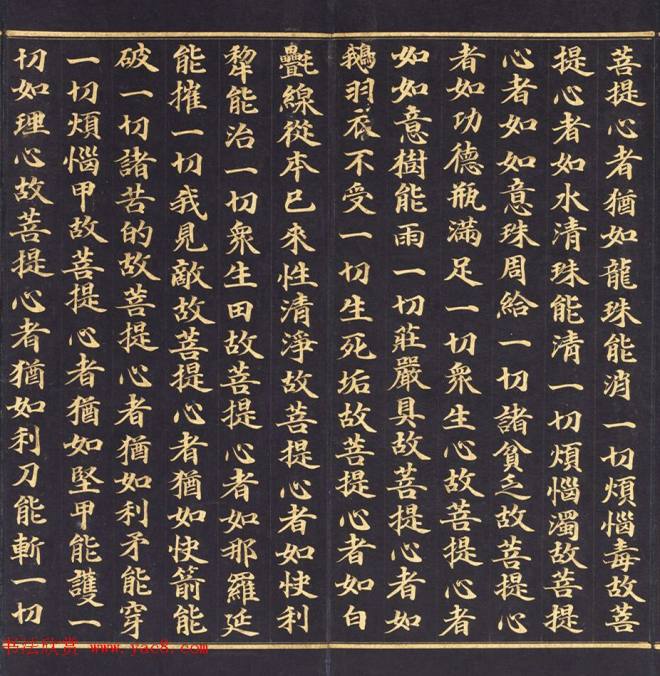 菩提心者猶如龍珠能消一切煩惱毒故菩
提心者如水清珠能清一切煩惱濁故菩提
心者如如意珠周給一切諸貧乏故菩提心
者如功德瓶滿足一切衆生心故菩提心者
如如意樹能雨一切莊嚴具故菩提心者如
鵝羽衣不受一切生死垢故菩提心者如白
氎線從本已來性清淨故菩提心者如快利
犂能治一切衆生田故菩提心者如那羅延
能摧一切我見敵故菩提心者猶如快箭能
破一切諸苦的故菩提心者猶如利矛能穿
一切煩惱甲故菩提心者猶如堅甲能護一
切如理心故菩提心者猶如利刀能斬一切
书法欣赏 www.yac8.com